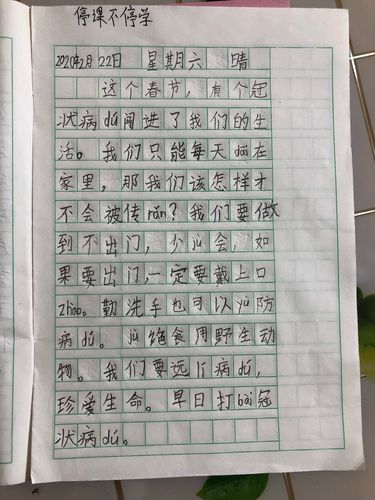 停课不停学
2020年2月22日 星期六 晴
这个春节，有个冠
状病dú闯进了我们的生
活。我们只能每天dāi在
家里，那我们该怎样才
不会被传rǎn？我们要做
到不出门，少jù会，如
果要出门，一定要戴上口
zhào。勤洗手也可以yù防
病dú。jù绝食用野生动
物。我们要远离病dú，
珍爱生命。早日打bài冠
状病dú。